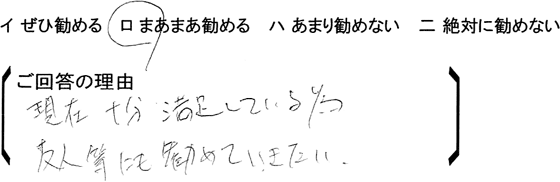 イ ぜひ勧める ロ まあまあ勧める ハ あまり勧めない ニ 絶対に勧めない
ご回答の理由
現在 十分 満足している為
友人等にも勧めていきたい.